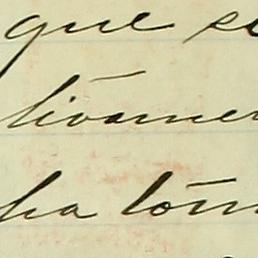 que se
tivamen
ha tom